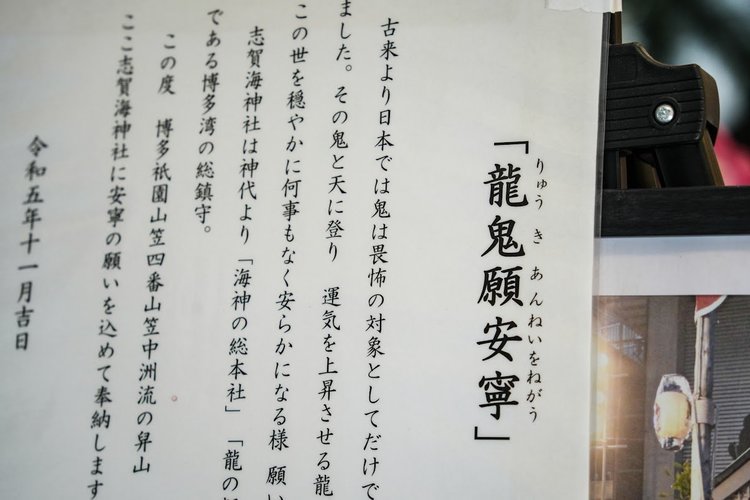 「龍鬼願安寧」
りゅう き あんねいをねがう
古来より日本では鬼は畏怖の対象としてだけで
ました。その鬼と天に登り 運気を上昇させる龍
この世を穏やかに何事もなく安らかになる様 願い
志賀海神社は神代より「海神の総本社」「龍の
である博多湾の総鎮守。
この度 博多祇園山笠四番山笠中洲流の舁山
ここ志賀海神社に安寧の願いを込めて奉納します
令和五年十一月吉日